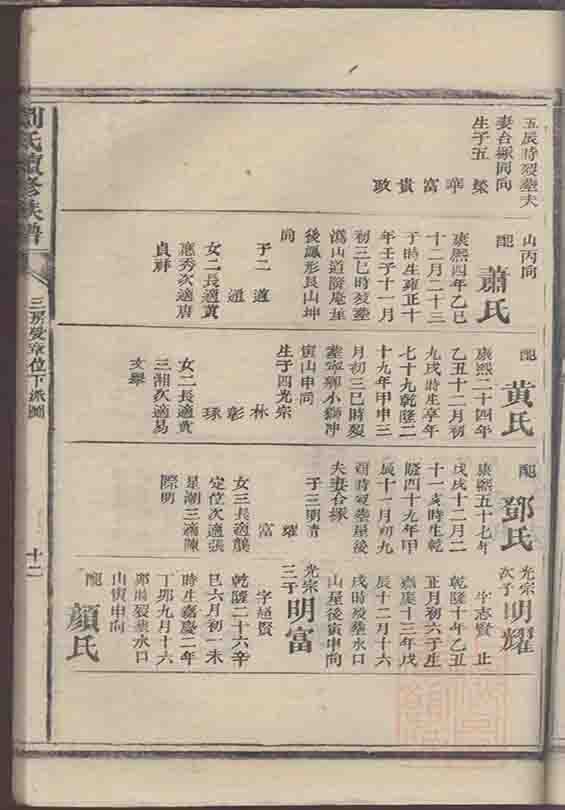 五辰時歿塟夫
妻合塚同向
生子五 榮
華
富
貴
政
山丙向
配 蕭氏
康熙四年乙巳
十二月二十三
子時生雍正十
年壬子十一月
初三巳時歿塟
溈山道
後 形艮山坤
向
子二 適
通
女二長適黃
應秀次適唐
貞群
配 黃氏
康熙二十四年
乙丑十二月初
九戌時生享年
七十九乾隆二
十九年甲申三
月初三巳時歿
塟寧鄉小獅冲
寅山申向
生子四光宗
林
彰
球
女二長適黃
三湘次適易
文舉
配 鄧氏
康熙五十七年
戊戌十二月二
十一亥時生乾
隆四十九年甲
辰十一月初九
酉時歿塟屋後
夫妻合塚
子三明清
耀
富
女三長適龔
定位次適張
星潮三適陳
際明
光宗次子 明耀
字志賢 止
乾隆十年乙丑
正月初六子生
嘉慶十三年戊
辰十二月十六
戌時歿塟水口
山屋後寅申向
光宗三子 明富
字超賢
乾隆二十六辛
巳六月初一未
時生嘉慶二年
丁卯九月十六
卯時歿塟水口
山寅申向
配 顏氏
劉氏續修族譜
三房受章位下派圖
十二